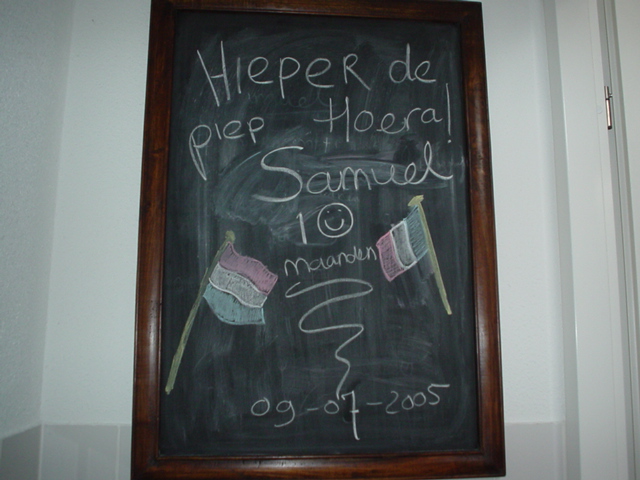 HIEPER de
piep Hoera!
Samuel
10
maanden
09-07-2005